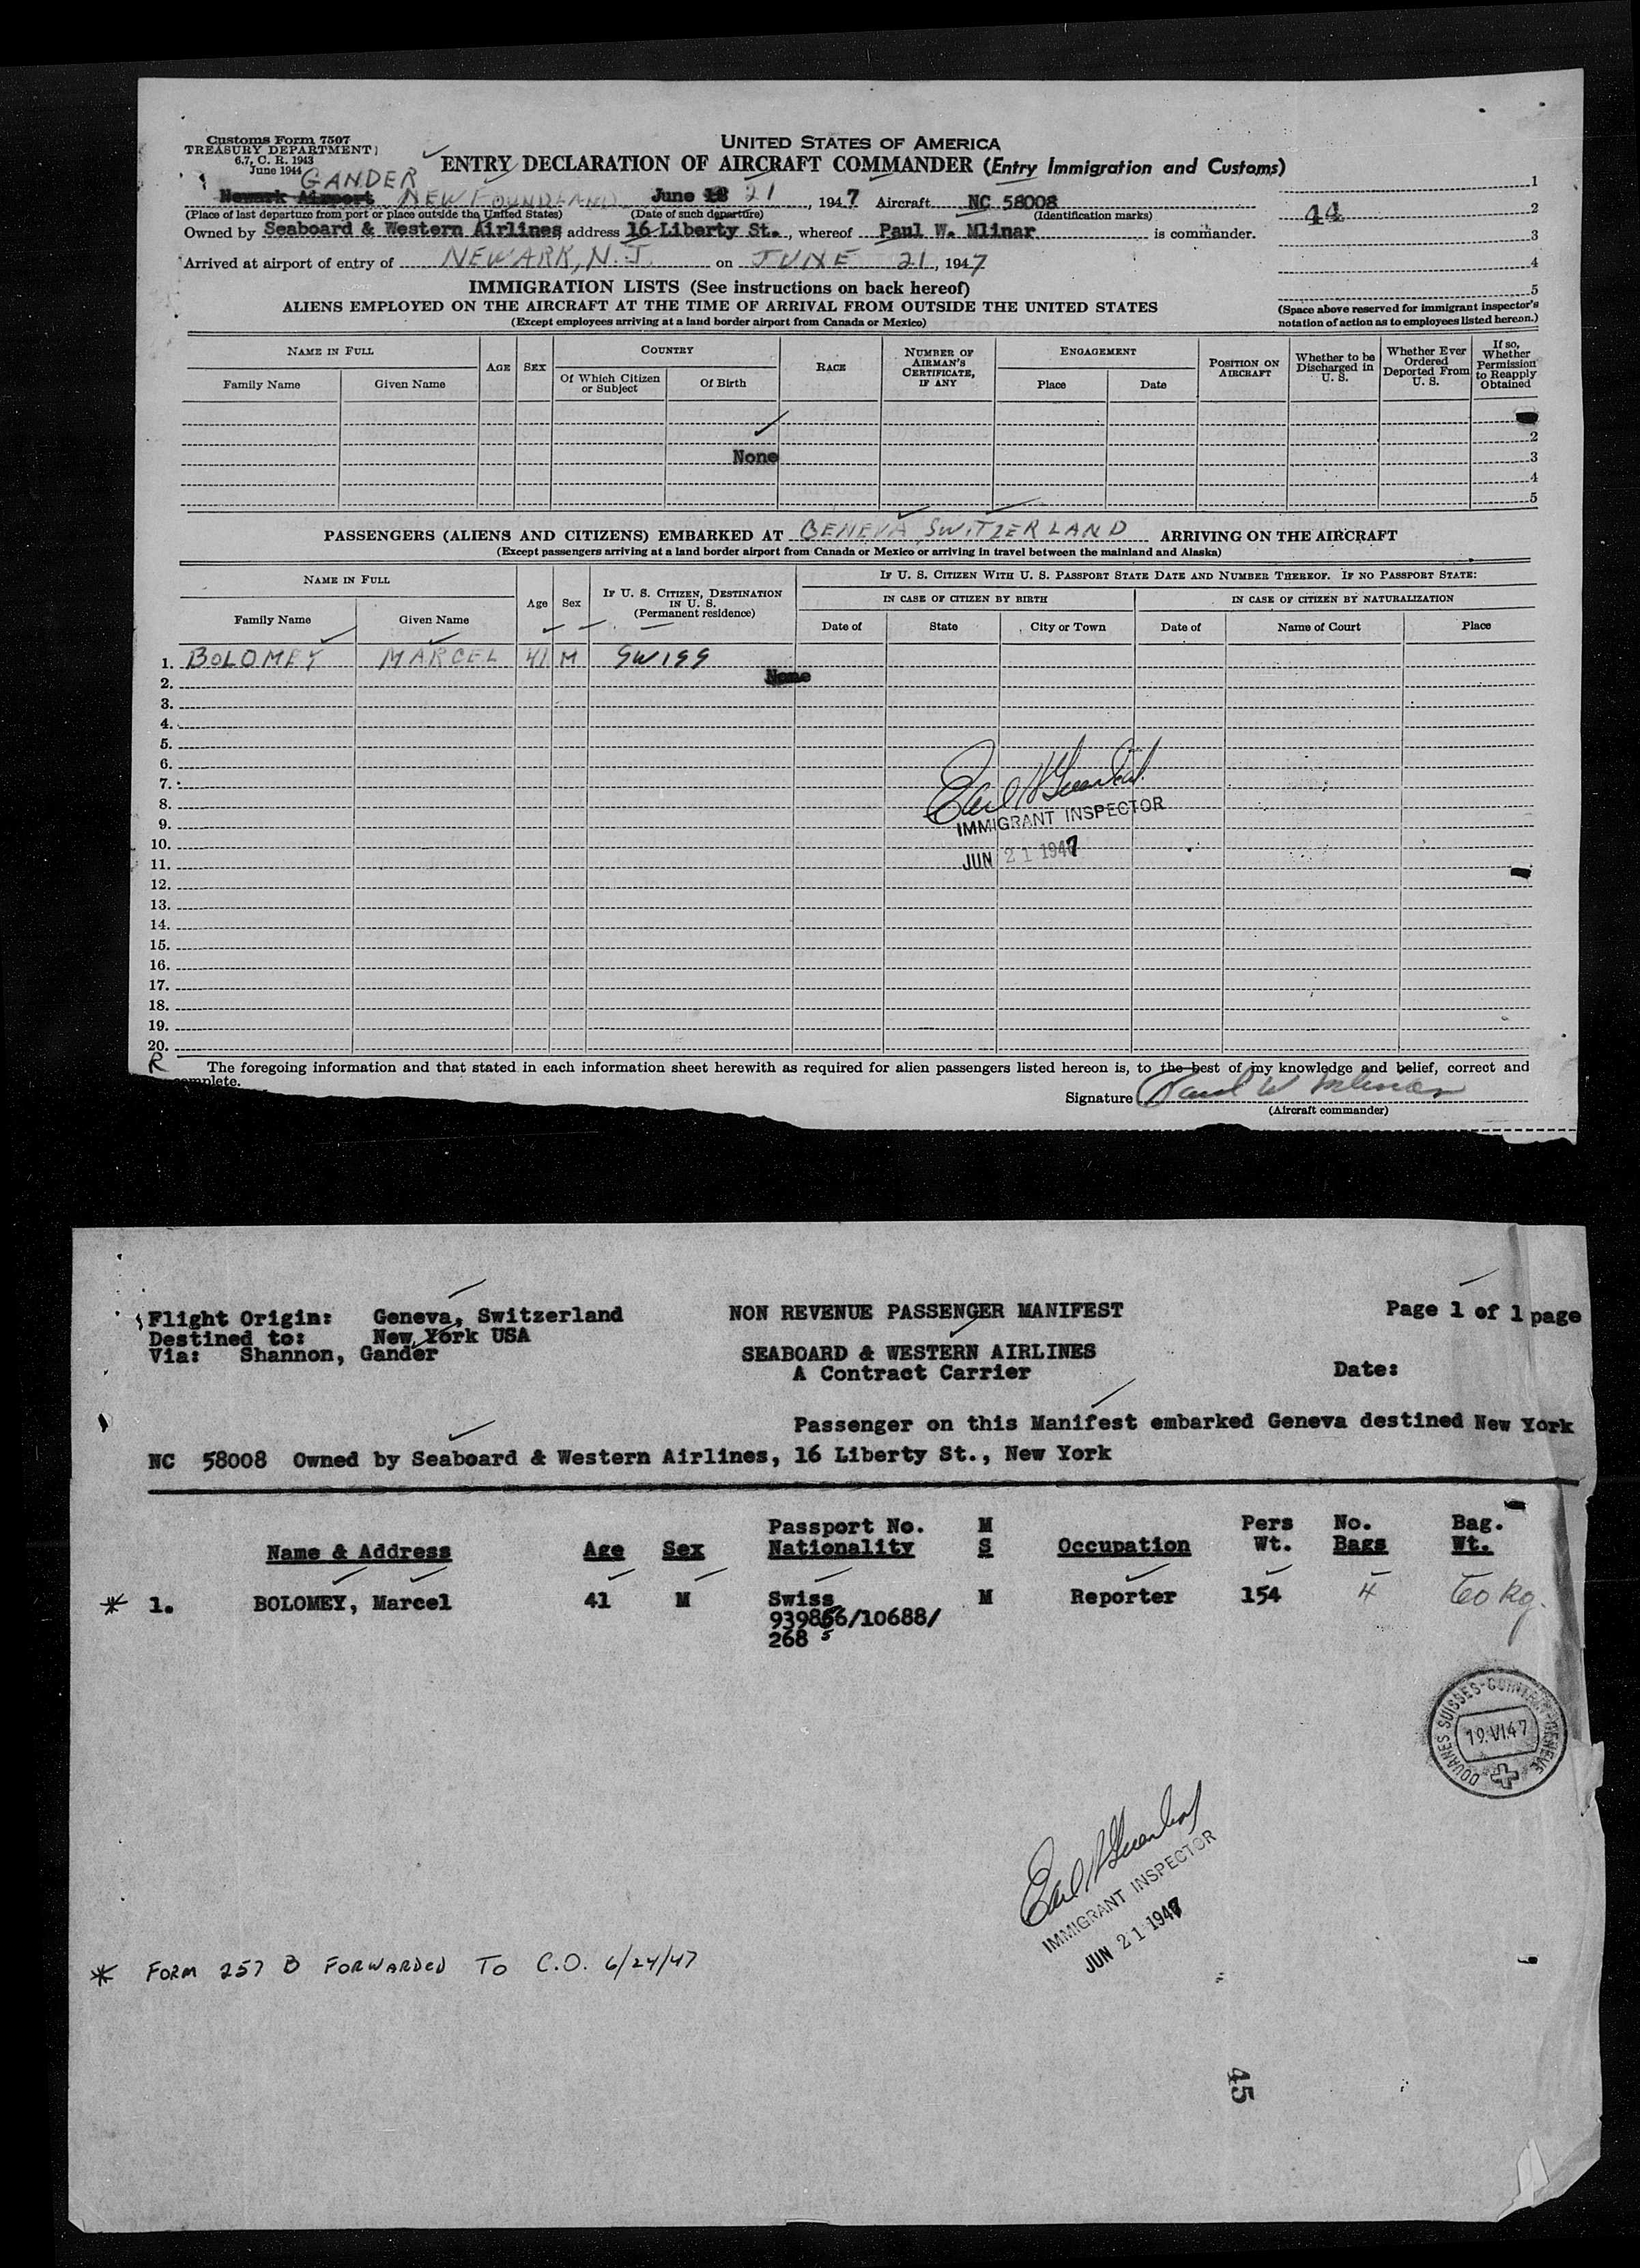 Customs Form 7507
TREASURY DEPARTMENT
6.7, C. R. 1943
June 1944
UNITED STATES OF AMERICA
ENTRY DECLARATION OF AIRCRAFT COMMANDER (Entry Immigration and Customs)
GANDER
Newark Airport NEWFOUNDLAND June 18 21, 1947 Aircraft NC 58008
(Place of last departure from port or place outside the United States) (Date of such departure) (Identification marks)
Owned by Seaboard & Western Airlines address 16 Liberty St., whereof Paul W. Mlinar is commander.
Arrived at airport of entry of NEWARK, N.J. on JUNE 21, 1947
1
44 2
3
4
5
(Space above reserved for immigrant inspector's notation of action as to employees listed hereon.)
IMMIGRATION LISTS (See instructions on back hereof)
ALIENS EMPLOYED ON THE AIRCRAFT AT THE TIME OF ARRIVAL FROM OUTSIDE THE UNITED STATES
(Except employees arriving at a land border airport from Canada or Mexico)
NAME IN FULL
Family Name Given Name
AGE SEX
COUNTRY
Of Which Citizen or Subject Of Birth
RACE
NUMBER OF AIRMAN'S CERTIFICATE, IF ANY
ENGAGEMENT
Place Date
POSITION ON AIRCRAFT
Whether to be Discharged in U. S.
Whether Ever Ordered Deported From U. S.
If so, Whether Permission to Reapply Obtained
2
None 3
4
5
PASSENGERS (ALIENS AND CITIZENS) EMBARKED AT GENEVA, SWITZERLAND ARRIVING ON THE AIRCRAFT
(Except passengers arriving at a land border airport from Canada or Mexico or arriving in travel between the mainland and Alaska)
NAME IN FULL
Family Name Given Name
Age Sex
IF U. S. CITIZEN, DESTINATION IN U. S. (Permanent residence)
IF U. S. CITIZEN WITH U. S. PASSPORT STATE DATE AND NUMBER THEREOF. IF NO PASSPORT STATE:
IN CASE OF CITIZEN BY BIRTH IN CASE OF CITIZEN BY NATURALIZATION
Date of State City or Town Date of Name of Court Place
1. BOLOMEY MARCEL 41 M SWISS
2. None
3.
4.
5.
6.
7.
8.
9.
10.
11.
12.
13.
14.
15.
16.
17.
18.
19.
20.
IMMIGRANT INSPECTOR
JUN 21 1947
R
The foregoing information and that stated in each information sheet herewith as required for alien passengers listed hereon is, to the best of my knowledge and belief, correct and
complete.
Signature Paul W Mlinar
(Aircraft commander)
Flight Origin: Geneva, Switzerland
Destined to: New York USA
Via: Shannon, Gander
NON REVENUE PASSENGER MANIFEST
SEABOARD & WESTERN AIRLINES
A Contract Carrier
Page 1 of 1 page
Date:
Passenger on this Manifest embarked Geneva destined New York
NC 58008 Owned by Seaboard & Western Airlines, 16 Liberty St., New York
Name & Address Age Sex Passport No. Nationality M S Occupation Pers Wt. No. Bags Bag. Wt.
* 1. BOLOMEY, Marcel 41 M Swiss M Reporter 154 4 60 kg.
939866/10688/
268 5
DOUANES SUISSES-COINTRIN-GENEVE
19.VI.47
IMMIGRANT INSPECTOR
JUN 21 1947
* FORM 257 B FORWARDED TO C.O. 6/24/47
45